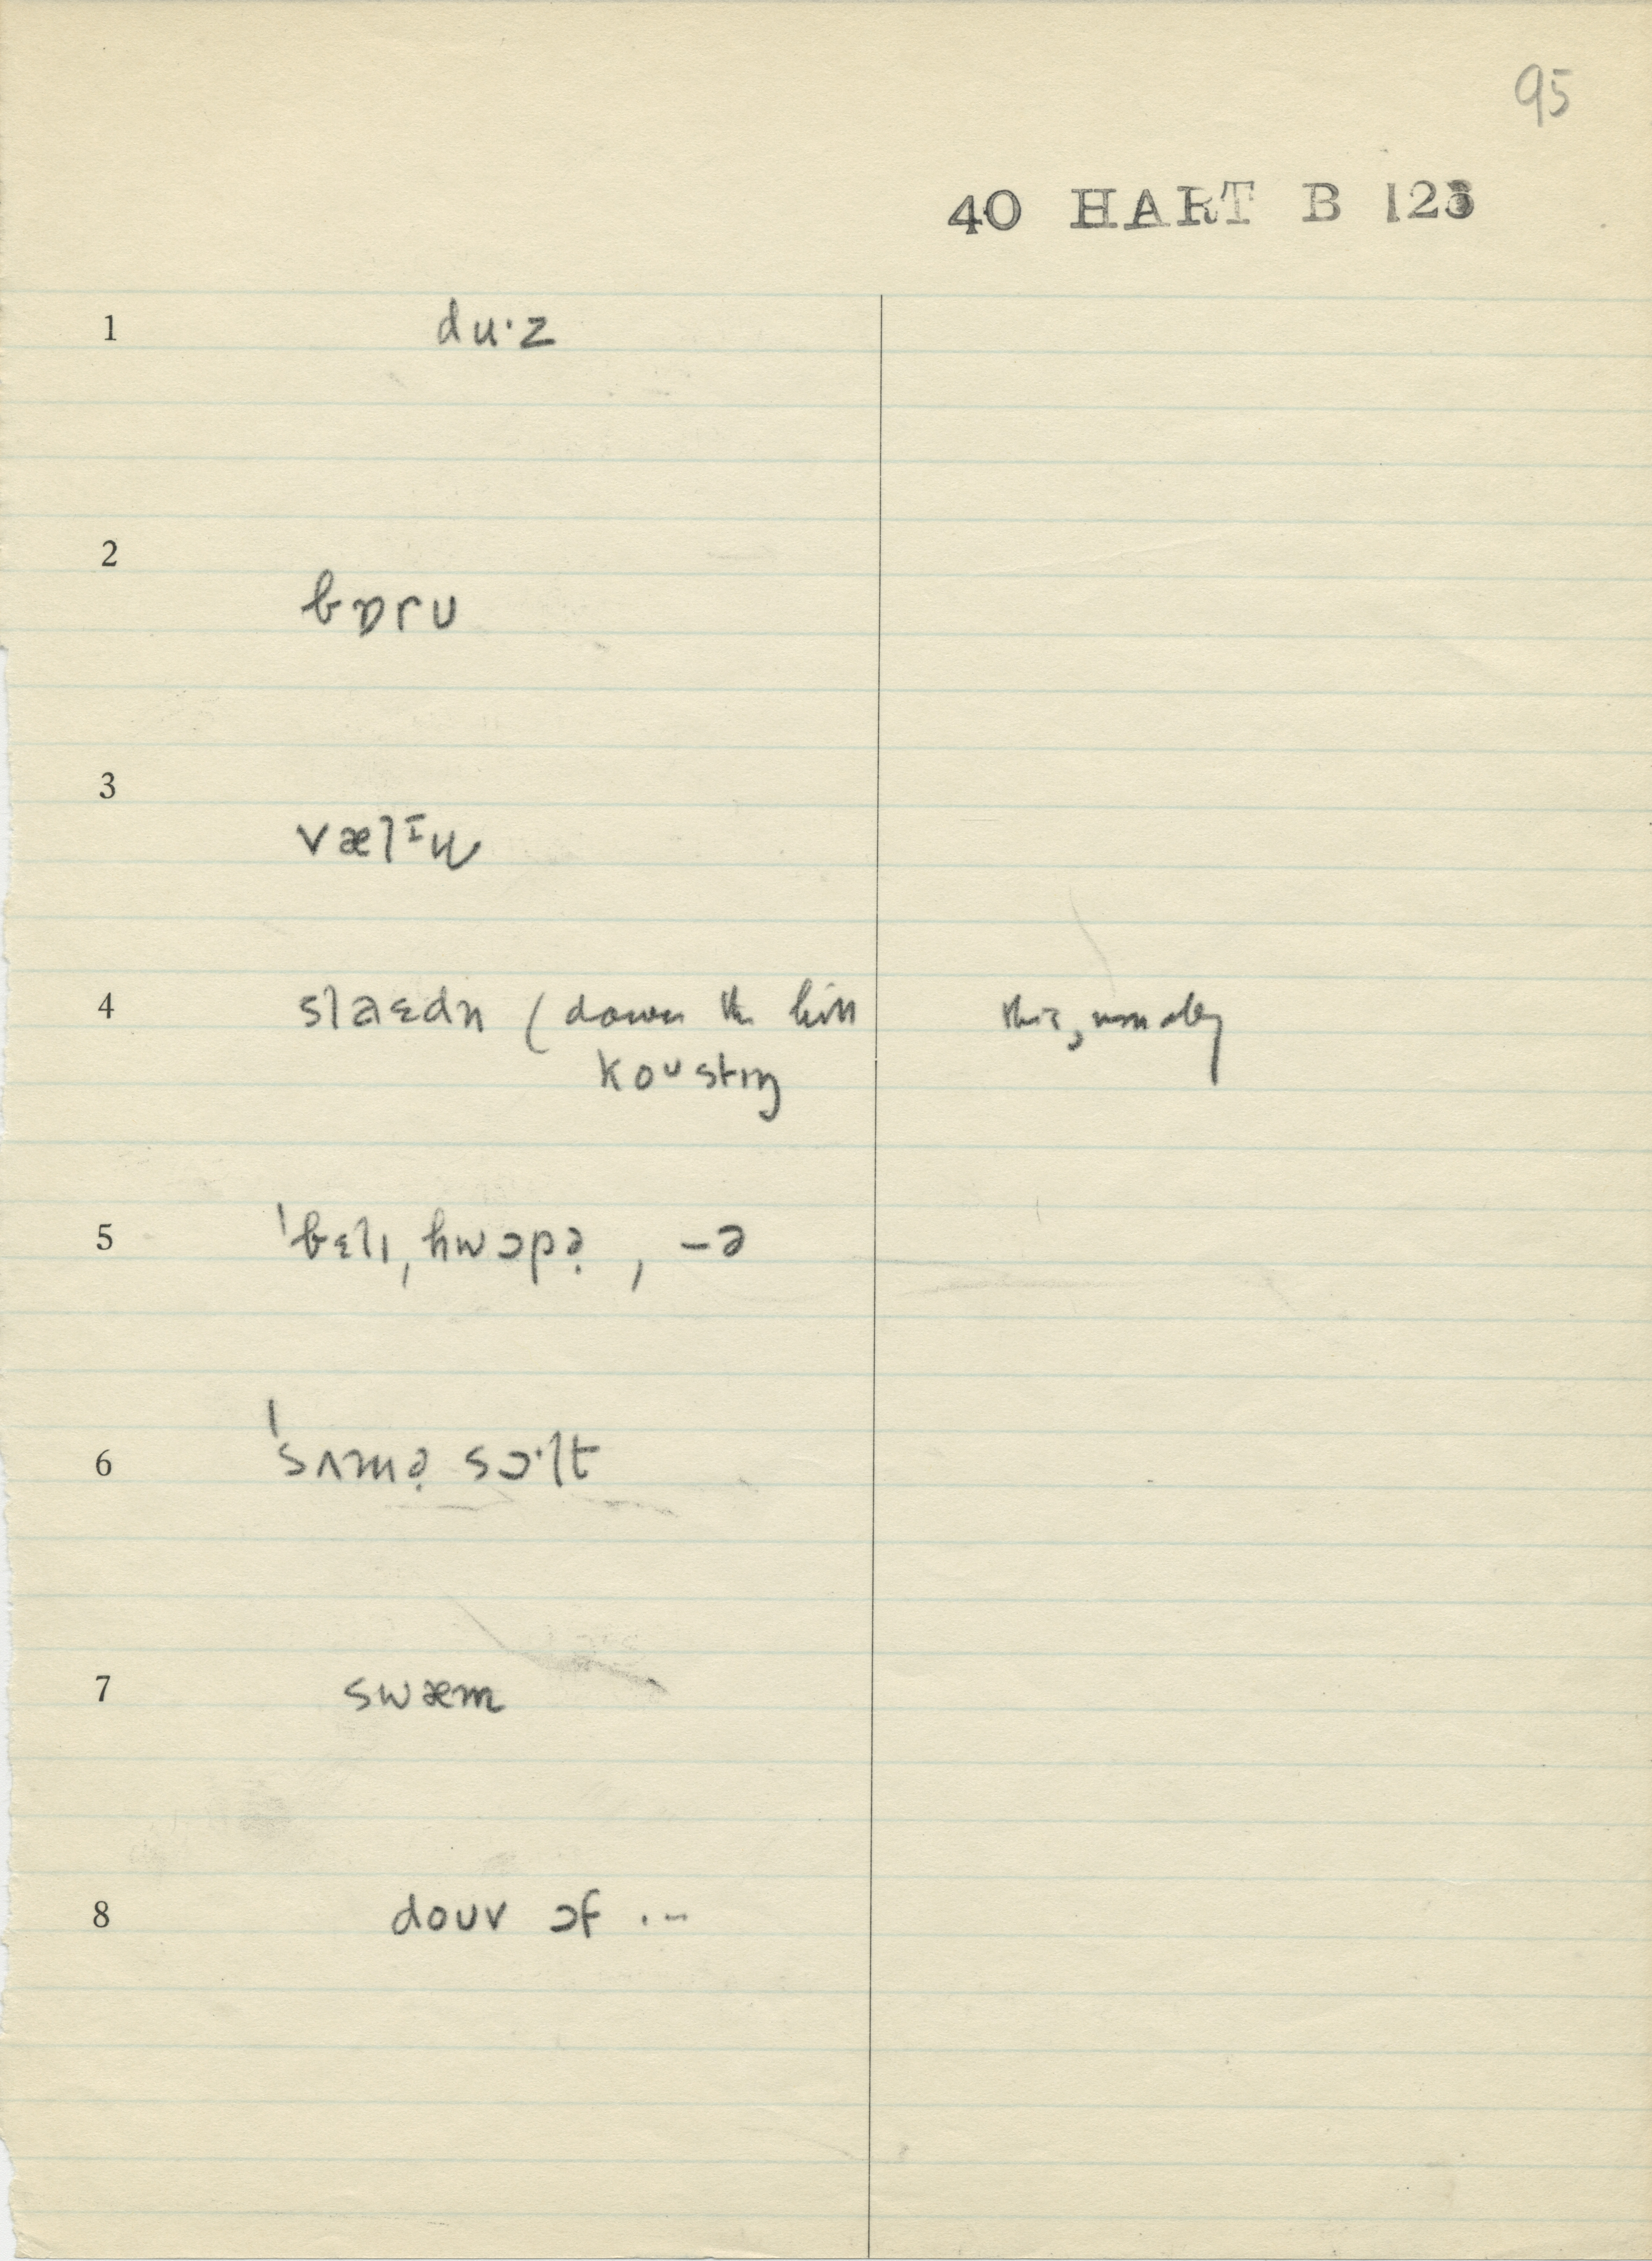 95
40 HART B 123
1 duˑz
2 bɒrʊ
3 vælɪʉ
4 slaɛdn (down the hill this, usually
koʊstɪŋ
5 ˈbɛlɪ, hwɔpə̣, -ə
6 ˈsʌmə̣ sɔˑlt
7 swæm
8 doʊv ɔf ...